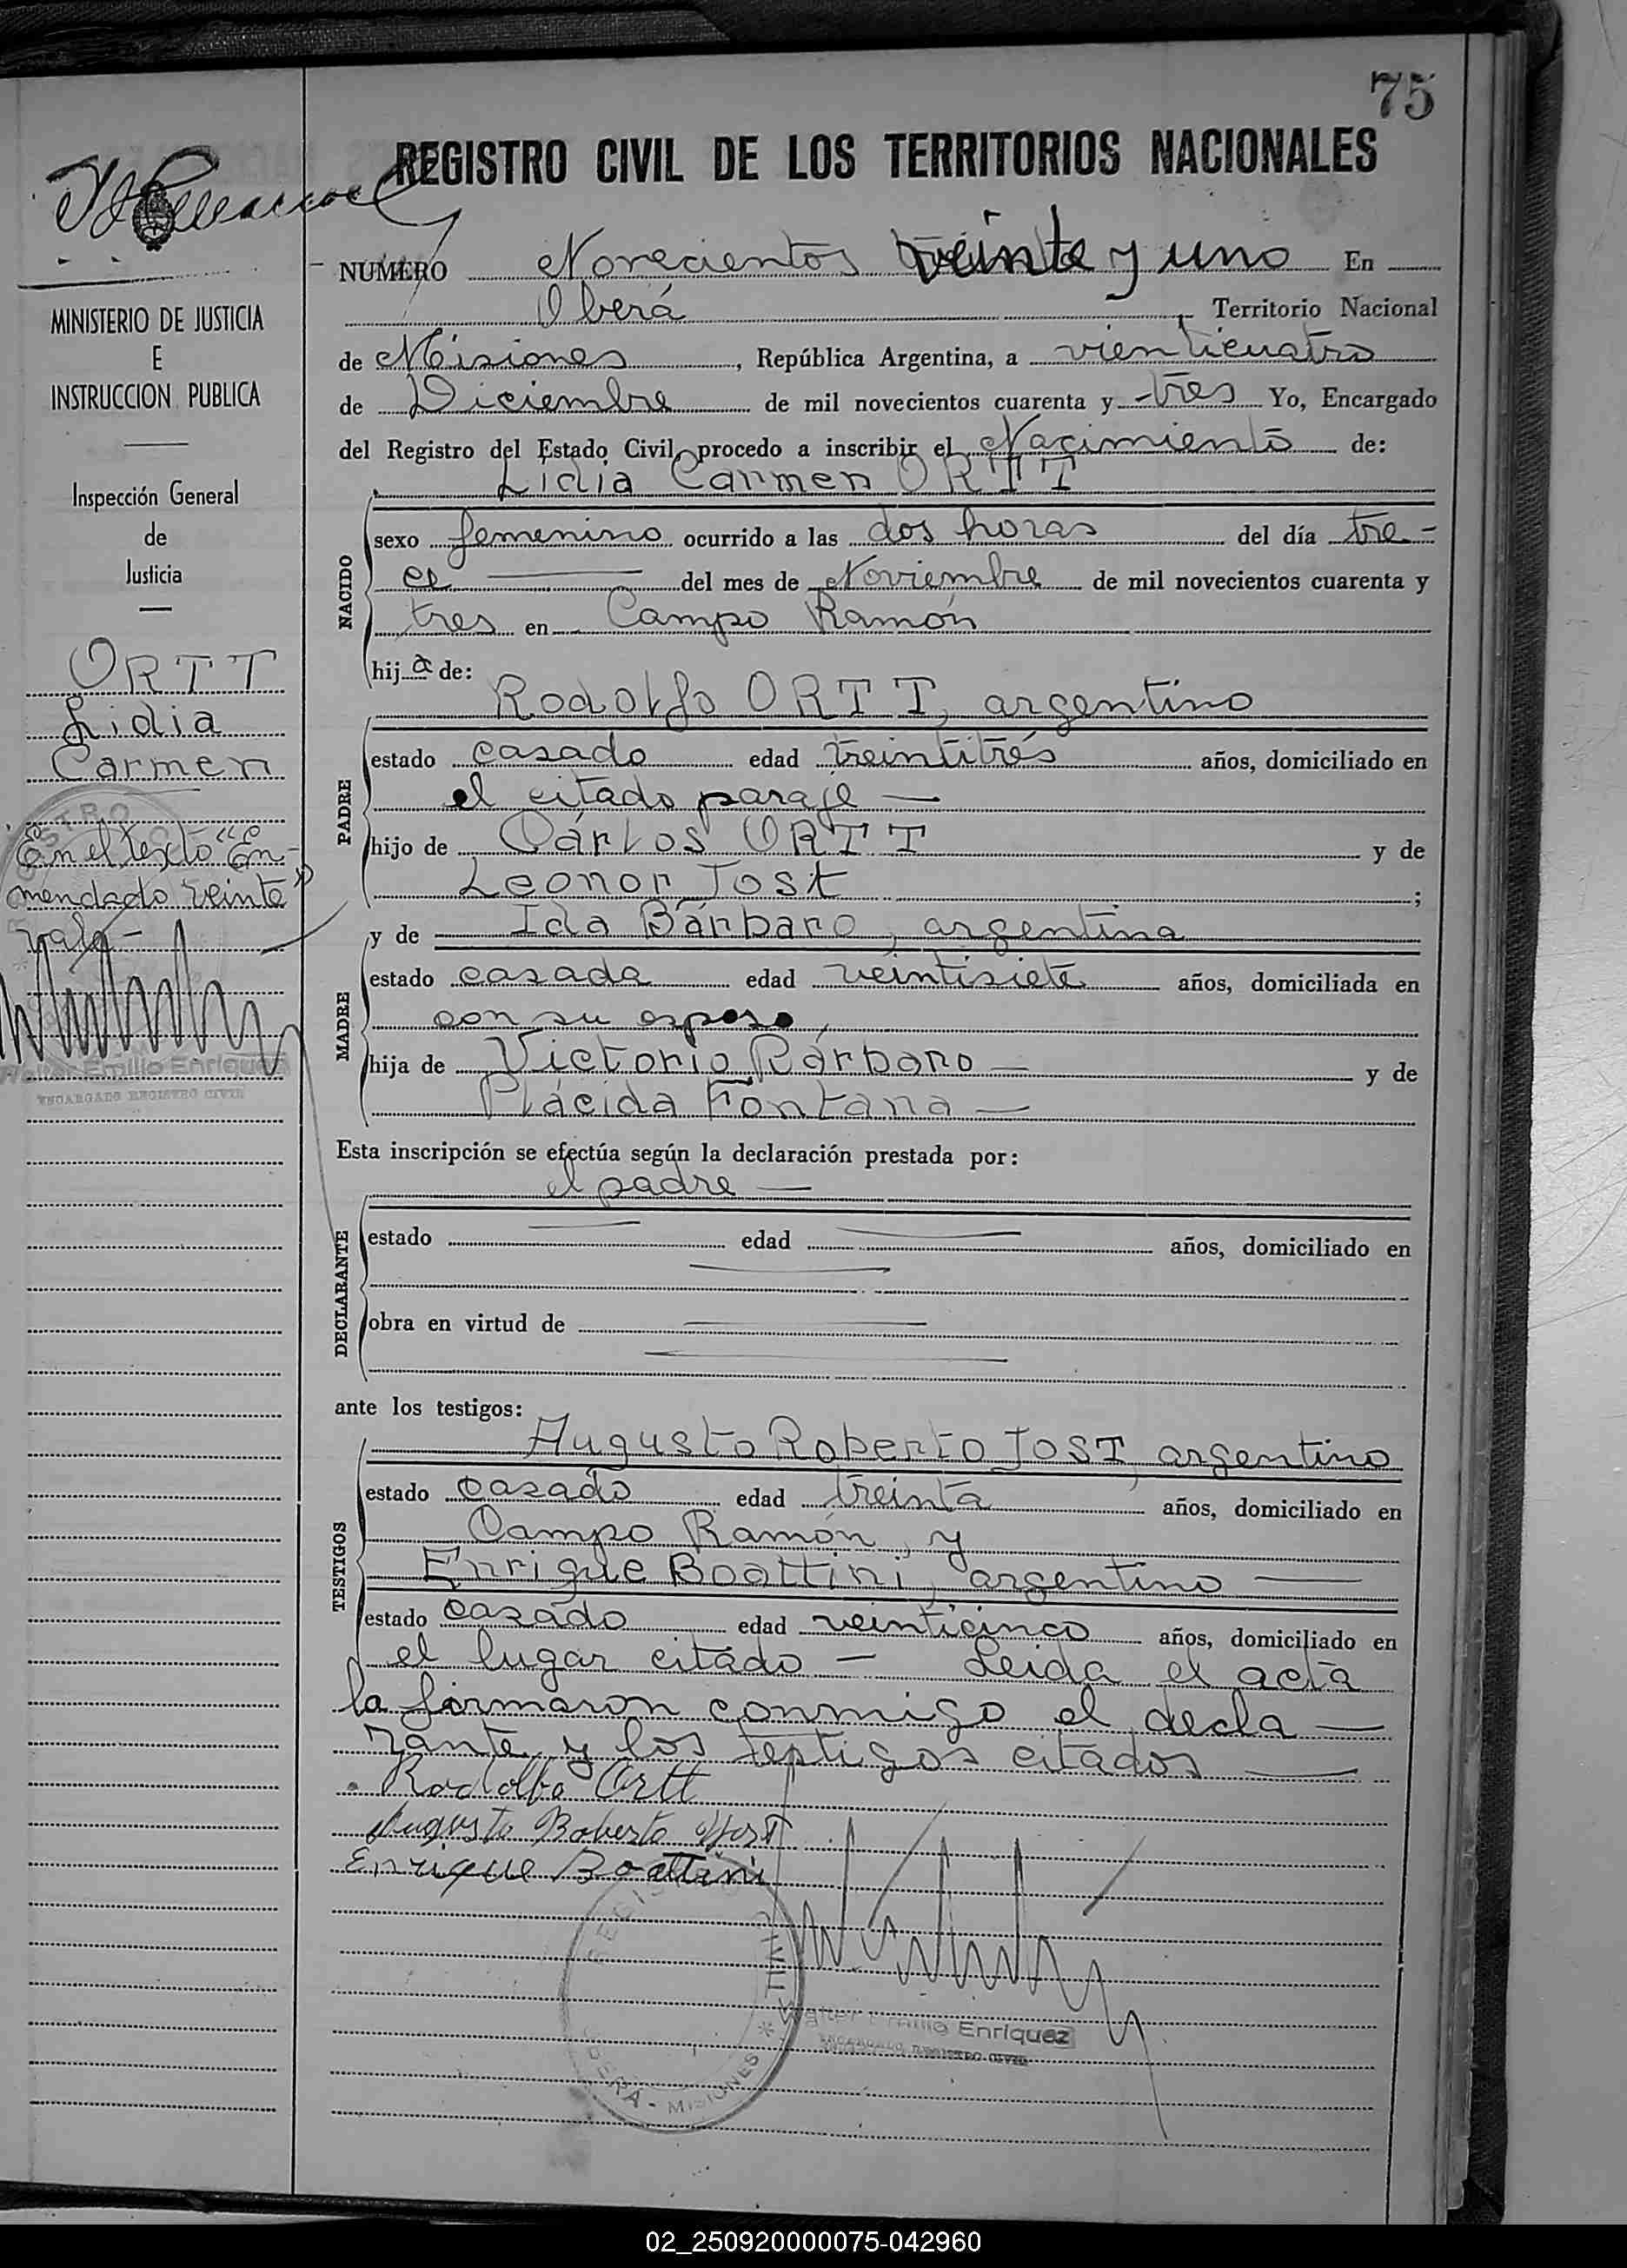 75
REGISTRO CIVIL DE LOS TERRITORIOS NACIONALES
NUMERO Novecientos veinte y uno En
Oberá, Territorio Nacional
de Misiones, República Argentina, a vienticuatro
de Diciembre de mil novecientos cuarenta y tres Yo, Encargado
del Registro del Estado Civil, procedo a inscribir el Nacimiento de:
Lidia Carmen ORTT
NACIDO
sexo femenino ocurrido a las dos horas del día tre-
ce del mes de Noviembre de mil novecientos cuarenta y
tres en Campo Ramón
hija de:
Rodolfo ORTT, argentino
PADRE
estado casado edad treintitrés años, domiciliado en
el citado paraje —
hijo de Cárlos ORTT y de
Leonor Jost ;
y de Ida Bárbaro, argentina
MADRE
estado casada edad veintisiete años, domiciliada en
con su esposo,
hija de Victorio Bárbaro — y de
Plácida Fontana —
Esta inscripción se efectúa según la declaración prestada por:
el padre —
DECLARANTE
estado edad años, domiciliado en
obra en virtud de
ante los testigos:
Augusto Roberto JOST, argentino
TESTIGOS
estado casado edad treinta años, domiciliado en
Campo Ramón, y
Enrique Boattini, argentino —
estado casado edad veinticinco años, domiciliado en
el lugar citado — Leida el acta
la firmaron conmigo el decla —
rante y los testigos citados —
Rodolfo Ortt
Augusto Roberto Jost
Enrique Boattini
REGISTRO CIVIL
* OBERA - MISIONES *
Walter Emilio Enriquez
ENCARGADO REGISTRO CIVIL
MINISTERIO DE JUSTICIA
E
INSTRUCCION PUBLICA
Inspección General
de
Justicia
ORTT
Lidia
Carmen
En el texto "En-
mendado veinte"
vale -
Walter Emilio Enriquez
ENCARGADO REGISTRO CIVIL
02_250920000075-042960